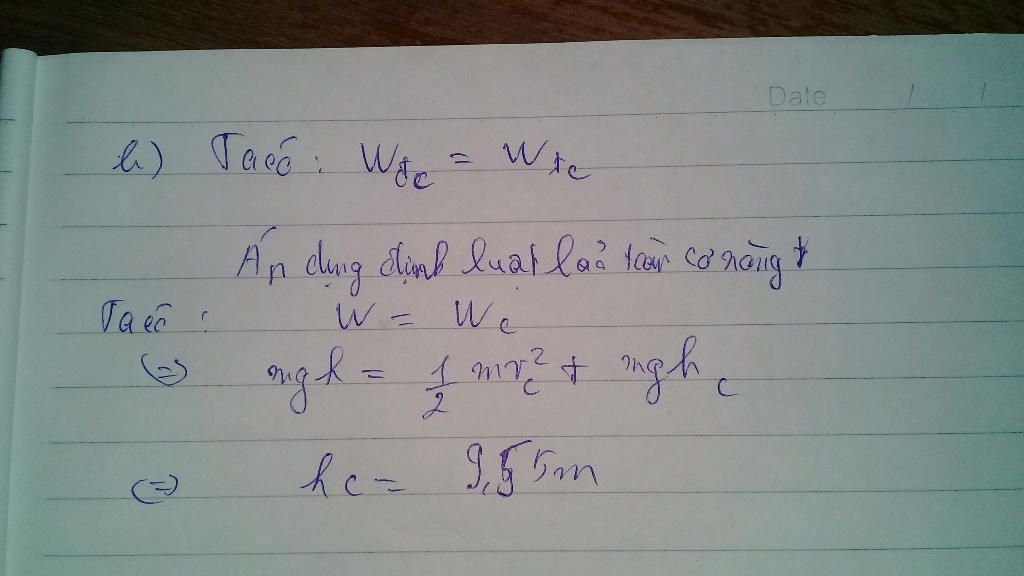 Date / /
b) Ta có : Wđc = Wtc
Áp dụng định luật bảo toàn cơ năng
Ta có : W = Wc
(=) mgh = 1/2 mvc² + mghc
(=) hc = 9,55m